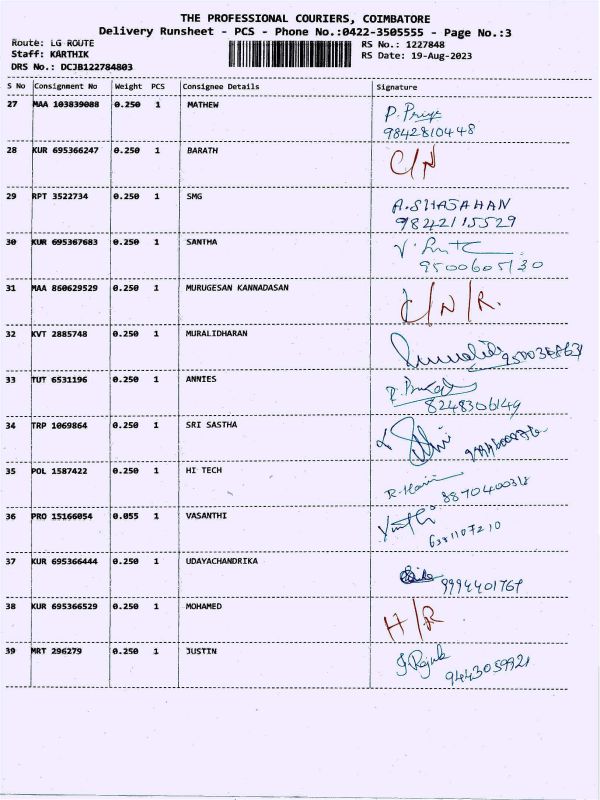 THE PROFESSIONAL COURIERS, COIMBATORE
Delivery Runsheet - PCS - Phone No.:0422-3505555 - Page No.:3
Route: LG ROUTE RS No.: 1227848
Staff: KARTHIK RS Date: 19-Aug-2023
DRS No.: DCJB122784803
S No Consignment No Weight PCS Consignee Details Signature
27 MAA 103839088 0.250 1 MATHEW P. Priya
9842810448
28 KUR 695366247 0.250 1 BARATH C/N
29 RPT 3522734 0.250 1 SMG A.SHAJAHAN
9842115529
30 KUR 695367683 0.250 1 SANTHA
9500605130
31 MAA 860629529 0.250 1 MURUGESAN KANNADASAN C/N/R.
32 KVT 2885748 0.250 1 MURALIDHARAN
33 TUT 6531196 0.250 1 ANNIES
8248306149
34 TRP 1069864 0.250 1 SRI SASTHA
35 POL 1587422 0.250 1 HI TECH
36 PRO 15166054 0.055 1 VASANTHI
6381107210
37 KUR 695366444 0.250 1 UDAYACHANDRIKA 9994401767
38 KUR 695366529 0.250 1 MOHAMED H/R
39 MRT 296279 0.250 1 JUSTIN
9443059921